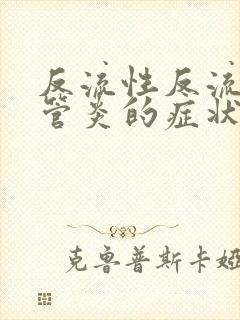 反流性反流
管炎的症状
克鲁普斯卡娅